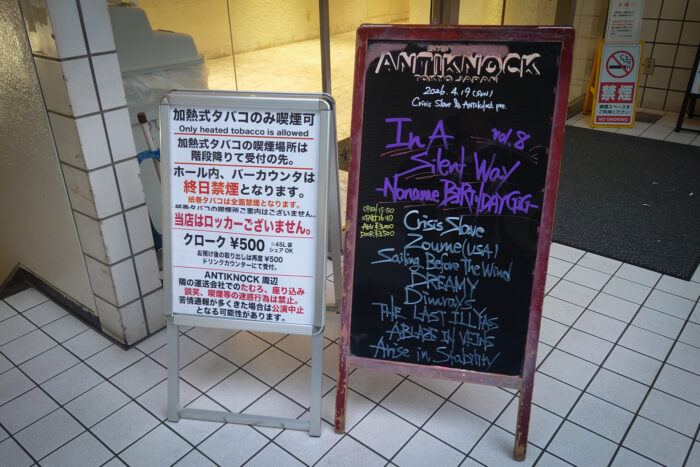 加熱式タバコのみ喫煙可
Only heated tobacco is allowed
加熱式タバコの喫煙場所は
階段降りて受付の先。
ホール内、バーカウンタは
終日禁煙となります。
紙巻タバコは全面禁煙となります。
紙巻タバコの喫煙所ご案内はございません。
当店はロッカーございません。
クローク ¥500
※45L 袋
シェア OK
お預け後の取り出しは再度 ¥500
ドリンクカウンターにて受付。
ANTIKNOCK 周辺
隣の運送会社でのたむろ、座り込み
談笑、喫煙等の迷惑行為は禁止。
苦情通報が多くきた場合は公演中止
となる可能性があります。
ANTIKNOCK
TOKYO JAPAN
2026. 4.19 (SUN)
Crisis Slave & Antiknock pre.
In A
Silent Way
vol. 8
-Noname BIRTHDAY GIG-
OPEN 15:50
START 16:40
ADV ¥3000
DOOR ¥3500
Crisis Slave
Zoume (USA)
Sailing Before The Wind
DREAMY
Dimrays
THE LAST ILLYAS
ABLAZE IN VEINS
Arise in Stability
禁煙
喫煙スペースを
ご利用ください。
NO SMOKING